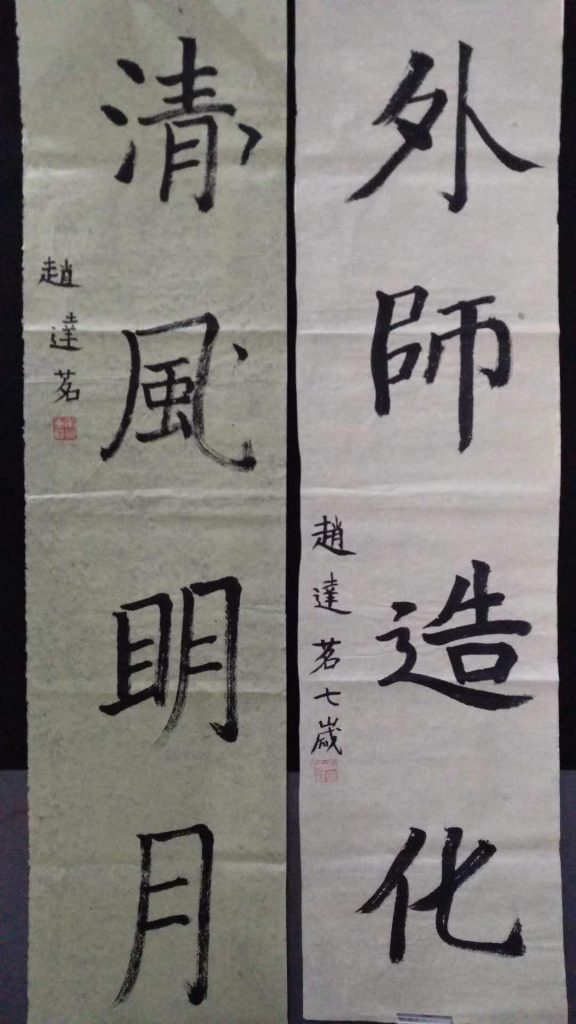 外師造化
趙達茗七歲
清風明月
趙達茗